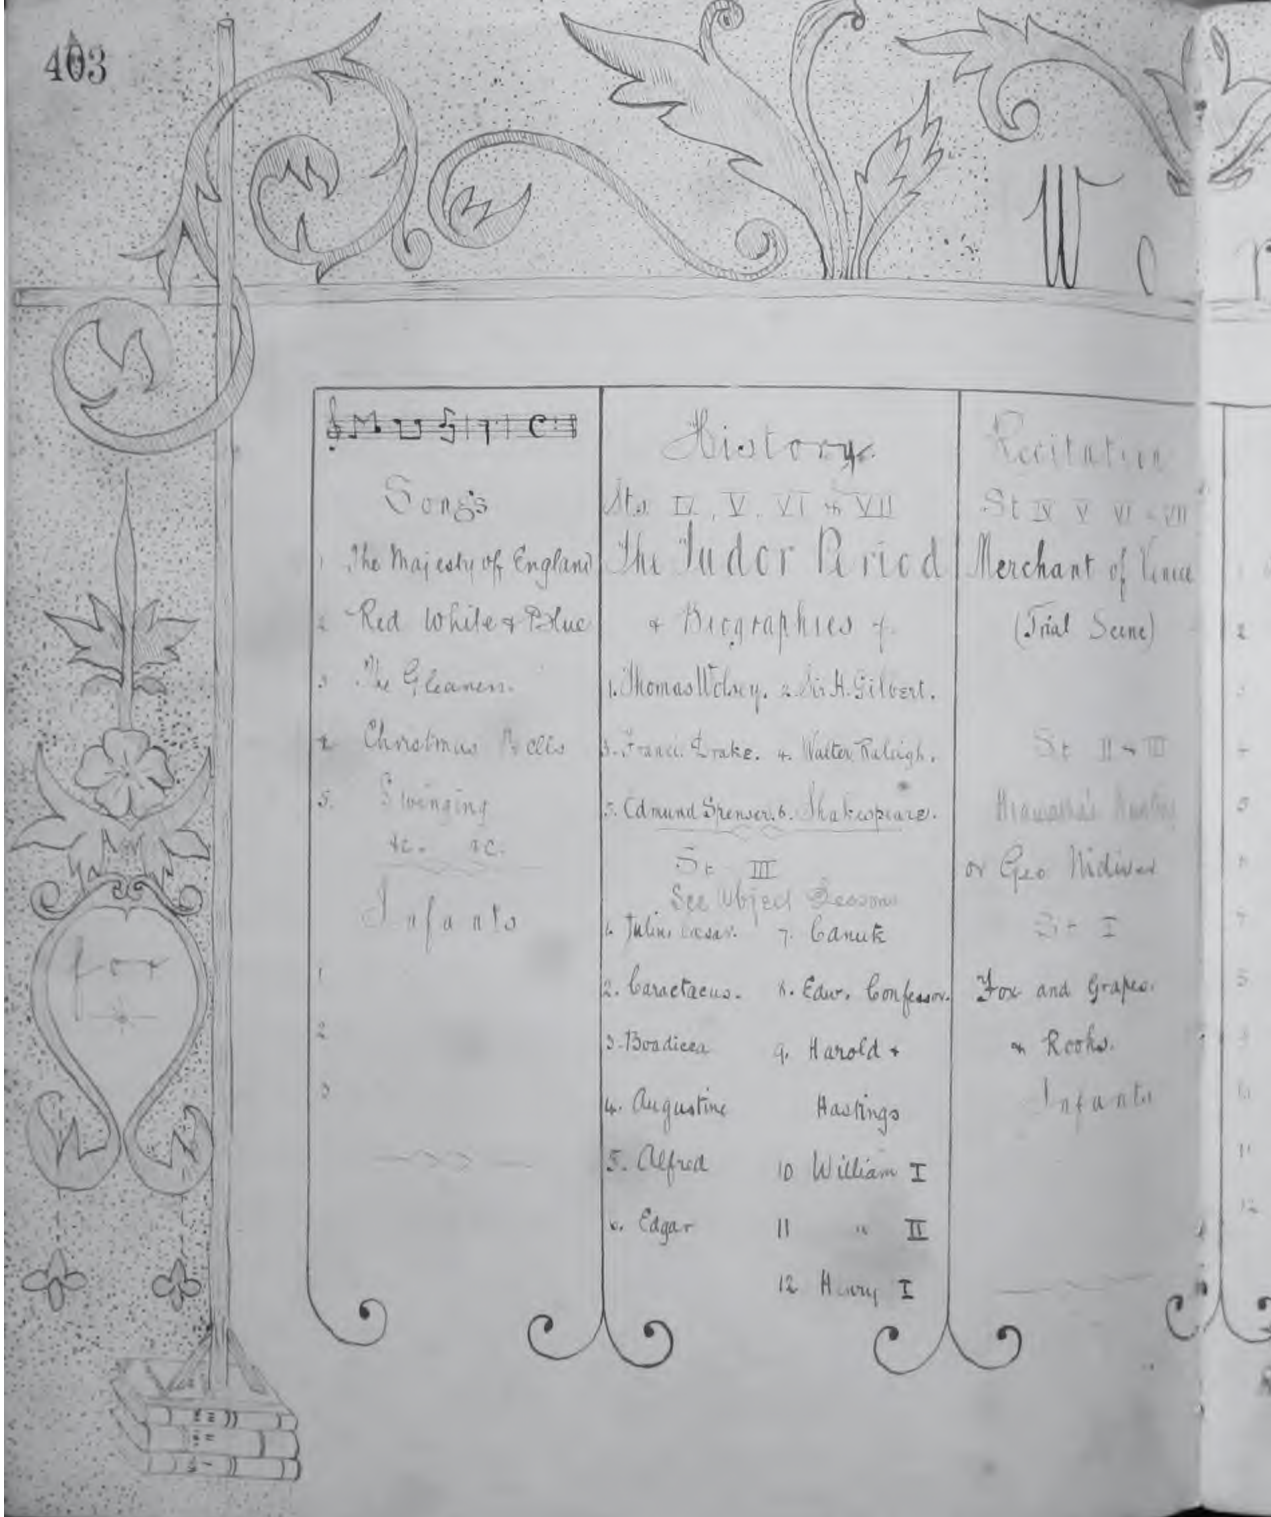 403
Wor
for
MUSIC
Songs
1 The Majesty of England
2 Red White & Blue
3 The Gleaners.
4 Christmas Bells
5. Swinging
&c. &c.
Infants
1
2
3
History
Sts. IV, V. VI & VII
The Tudor Period
& Biographies of
1. Thomas Wolsey. 2. Sir H. Gilbert.
3. Drake. 4. Walter Raleigh.
5. Edmund Spenser. 6. Shakespeare.
St III
See Object Lessons
1. Julius Caesar. 7. Canute
2. Caractacus. 8. Edw. Confessor.
3. Boadicea 9. Harold &
4. Augustine Hastings
5. Alfred 10 William I
6. Edgar 11 " II
12 Henry I
Recitation
St IV V VI & VII
Merchant of Venice
(Trial Scene)
St II & III
Hiawatha's
or Geo Nidiver
St I
Fox and Grapes.
& Rooks.
Infants
2
3
4
5
6
7
8
9
10
11
12